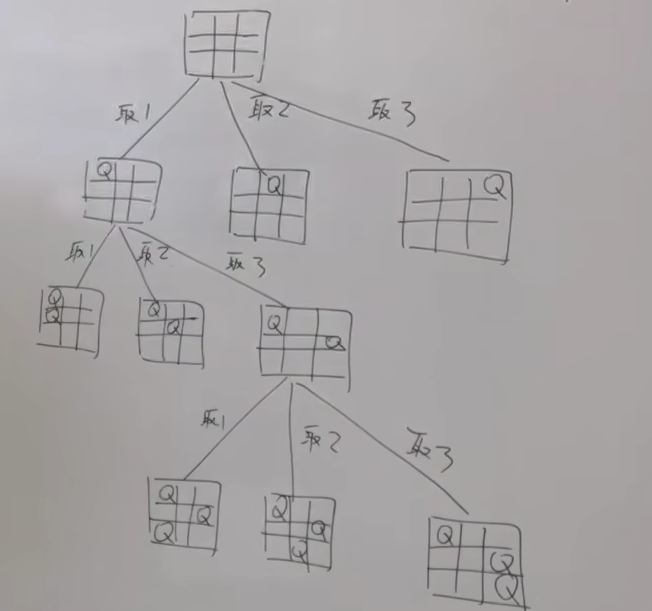 取1 取2 取3
Q Q Q
取1 取2 取3
Q Q Q
Q Q Q
取1 取2 取3
Q Q Q
Q Q Q
Q Q Q